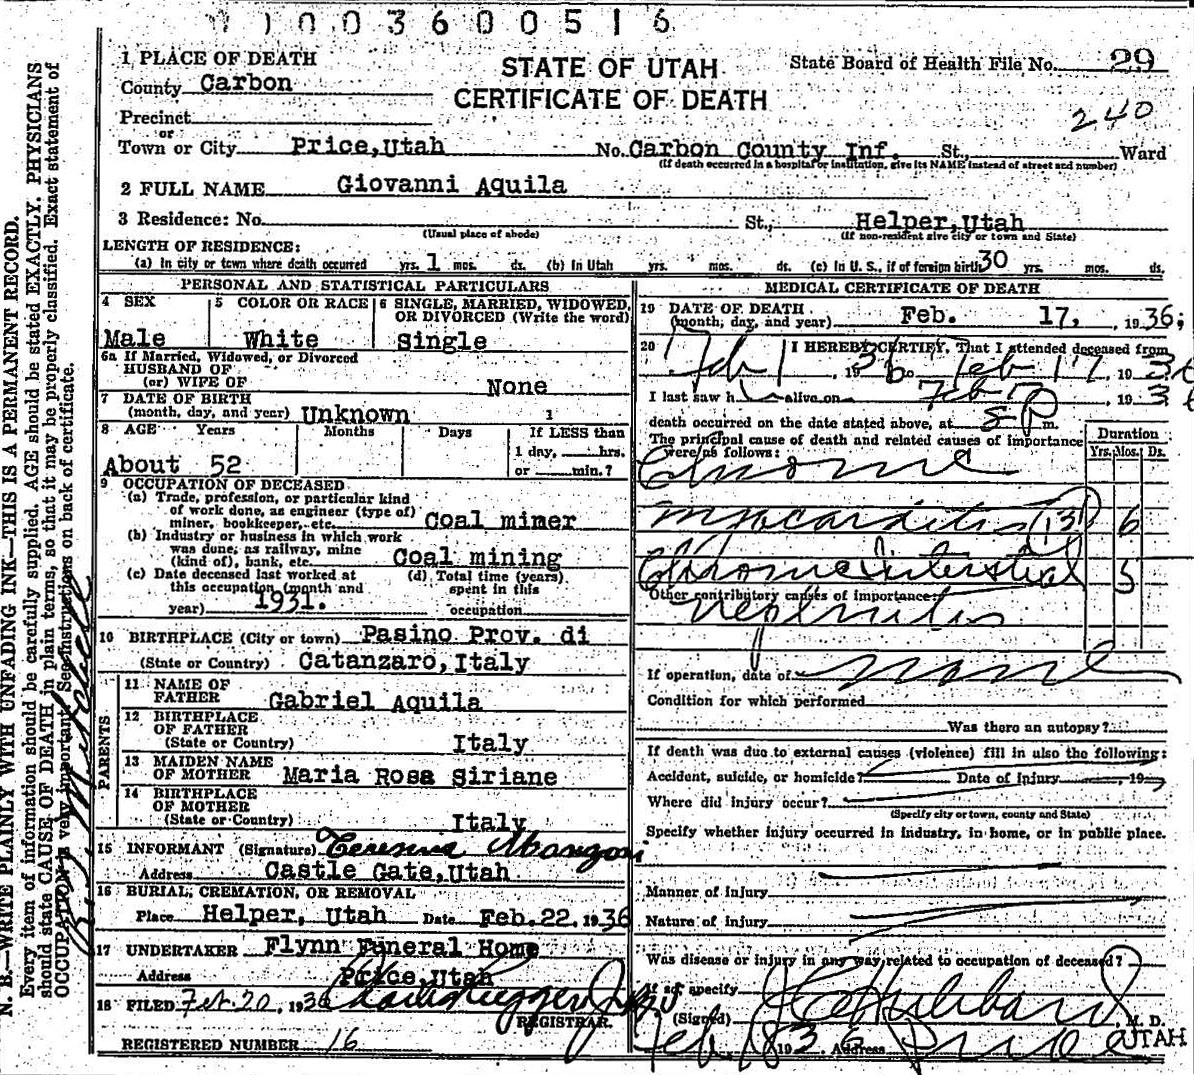 1003600516
1 PLACE OF DEATH
STATE OF UTAH
State Board of Health File No. 29
County Carbon
CERTIFICATE OF DEATH
240
Precinct
or
Town or City Price, Utah No. Carbon County Inf. St., Ward
(If death occurred in a hospital or institution, give its NAME instead of street and number)
2 FULL NAME Giovanni Aquila
3 Residence: No. St., Helper, Utah
(Usual place of abode) (If non-resident give city or town and State)
LENGTH OF RESIDENCE:
(a) In city or town where death occurred yrs. 1 mos. ds. (b) In Utah yrs. mos. ds. (c) In U. S., if of foreign birth 30 yrs. mos. ds.
PERSONAL AND STATISTICAL PARTICULARS
4 SEX
Male
5 COLOR OR RACE
White
6 SINGLE, MARRIED, WIDOWED, OR DIVORCED (Write the word)
Single
6a If Married, Widowed, or Divorced
HUSBAND OF
(or) WIFE OF None
7 DATE OF BIRTH
(month, day, and year) Unknown
8 AGE Years Months Days If LESS than
1 day, hrs.
or min.?
About 52
9 OCCUPATION OF DECEASED
(a) Trade, profession, or particular kind
of work done, as engineer (type of)
miner, bookkeeper, etc. Coal miner
(b) Industry or business in which work
was done, as railway, mine
(kind of), bank, etc. Coal mining
(c) Date deceased last worked at
this occupation (month and
year) 1931.
(d) Total time (years)
spent in this
occupation
10 BIRTHPLACE (City or town) Pasino Prov. di
(State or Country) Catanzaro, Italy
PARENTS
11 NAME OF
FATHER Gabriel Aquila
12 BIRTHPLACE
OF FATHER
(State or Country) Italy
13 MAIDEN NAME
OF MOTHER Maria Rosa Siriane
14 BIRTHPLACE
OF MOTHER
(State or Country) Italy
15 INFORMANT (Signature)
Address Castle Gate, Utah
16 BURIAL, CREMATION, OR REMOVAL
Place Helper, Utah Date Feb. 22, 1936
17 UNDERTAKER Flynn Funeral Home
Address Price, Utah
18 FILED Feb. 20, 1936
REGISTRAR.
REGISTERED NUMBER 16
MEDICAL CERTIFICATE OF DEATH
19 DATE OF DEATH
(month, day, and year) Feb. 17, 1936;
20 I HEREBY CERTIFY, That I attended deceased from
Feb 1, 1936 to Feb 17, 1936
I last saw h alive on Feb 1936
death occurred on the date stated above, at 8 P m.
The principal cause of death and related causes of importance
were as follows:
Duration
Yrs. Mos. Ds.
Chronic
myocarditis 6
Chronic interstitial 5
Other contributory causes of importance:
nephritis
If operation, date of none
Condition for which performed
Was there an autopsy?
If death was due to external causes (violence) fill in also the following:
Accident, suicide, or homicide? Date of injury 19
Where did injury occur?
(Specify city or town, county and State)
Specify whether injury occurred in industry, in home, or in public place.
Manner of injury
Nature of injury
Was disease or injury in any way related to occupation of deceased?
If so, specify
(Signed) Hubbard, M. D.
Feb. 18 1936. Address Price UTAH
N. B.—WRITE PLAINLY WITH UNFADING INK—THIS IS A PERMANENT RECORD.
Every item of information should be carefully supplied. AGE should be stated EXACTLY. PHYSICIANS
should state CAUSE OF DEATH in plain terms, so that it may be properly classified. Exact statement of
OCCUPATION is very important. See instructions on back of certificate.